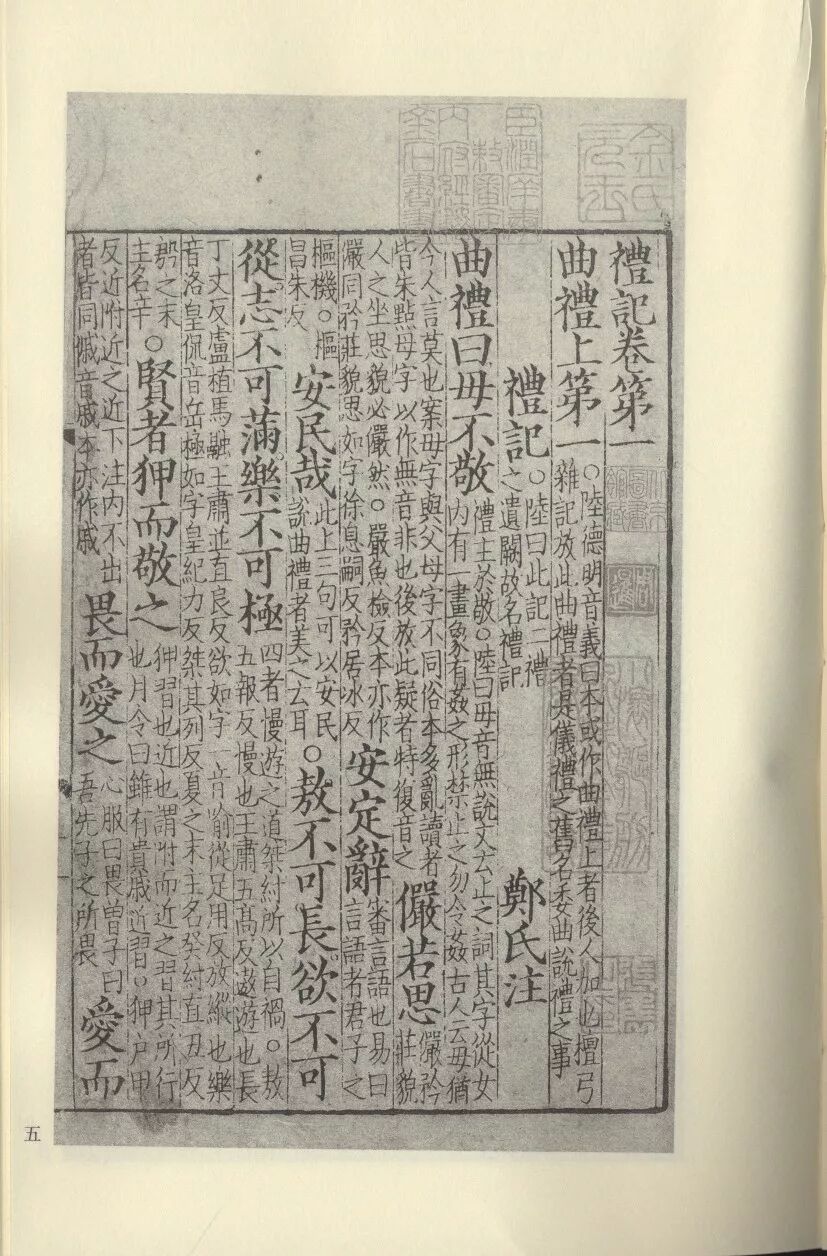 禮記卷第一
曲禮上第一○陸德明音義曰本或作曲禮上者後人加也檀弓雜記放此曲禮者是儀禮之舊名委曲說禮之事
禮記○陸曰此記二禮之遺闕故名禮記 鄭氏注
曲禮曰毋不敬禮主於敬○陸曰毋音無說文云止之詞其字從女內有一畫象有姦之形禁止之勿令姦古人云毋猶
今人言莫也案毋字與父母字不同俗本多亂讀者皆朱點母字以作無音非也後放此疑者特復音之儼若思儼矜莊貌
人之坐思貌必儼然○嚴魚檢反本亦作儼同矜莊貌思如字徐息嗣反矜居冰反安定辭審言語也易曰言語者君子之
樞機○樞昌朱反安民哉此上三句可以安民說曲禮者美之云耳○敖不可長欲不可
從志不可滿樂不可極四者慢遊之道桀紂所以自禍○敖五報反慢也王肅五高反遨遊也長
丁丈反盧植馬融王肅並直良反欲如字一音喻從足用反放縱也樂音洛皇侃音岳極如字皇紀力反桀其列反夏之末主名癸紂直丑反
殷之末主名辛○賢者狎而敬之狎習也近也謂附而近之習其所行也月令曰雖有貴戚近習○狎戶甲
反近附近之近下注內不出者皆同戚音戚本亦作戚畏而愛之心服曰畏曾子曰吾先子之所畏愛而
五